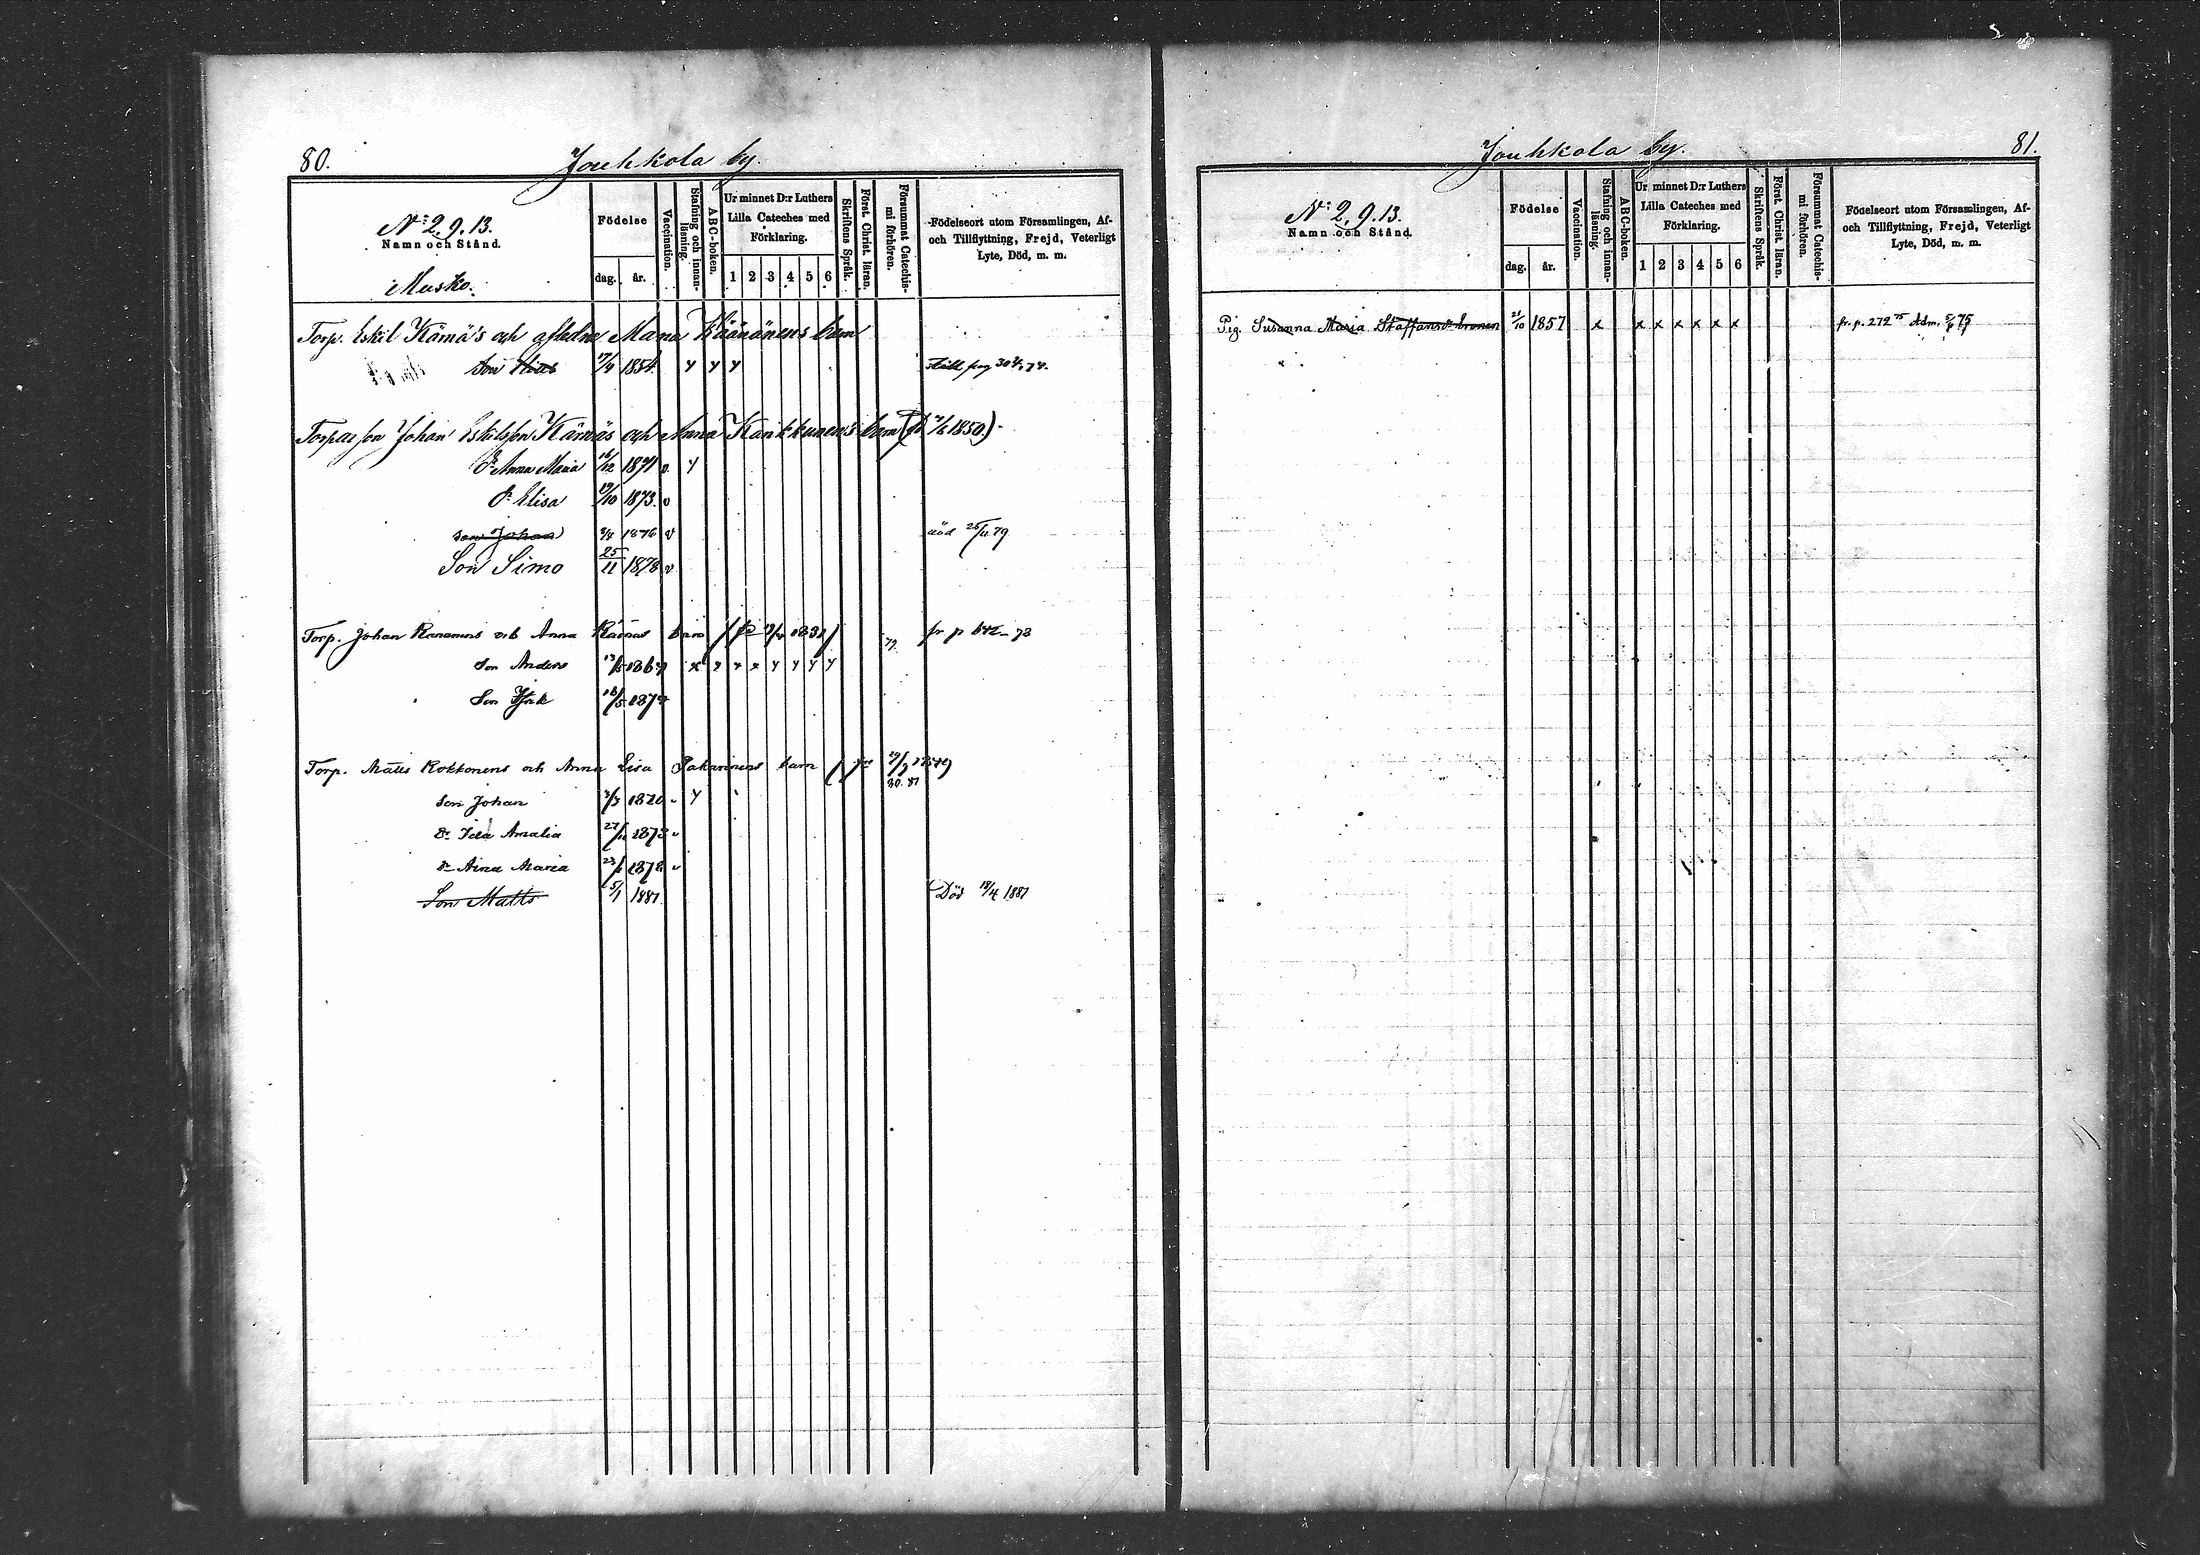 80.
Jouhkola by.
N:2, 9, 13.
Namn och Stånd.
Musko.
Födelse
dag. år.
Vaccination.
Stafning och innanläsning.
ABC-boken.
Ur minnet D:r Luthers
Lilla Cateches med
Förklaring.
1 2 3 4 5 6
Skriftens Språk.
Först. Christ. läran.
Försummat Catechismi förhören.
Födelseort utom Församlingen, Af-
och Tillflyttning, Frejd, Veterligt
Lyte, Död, m. m.
Torp. Eskil Kämä's och afledna Maria barn
Son 17/9 1854. y y y
Torpareson Johan Eskilsson Kämäs och Anna Kankkunens barn 1850).
Dr Anna Maria 16/12 1871 v y
Dr Elisa 19/10 1873. v
Son Johan 1876 v död 25/11 79
Son Simo 25/11 1878 v
Torp. Johan och Anna barn
Son Anders x y x x y y y y
Son
Torp. Matts Kokkonens och Anna Lisa barn
30. 81
Son Johan 1870 y
Dr Ida Amalia 1873
Dr Aina Maria 1878
Son Matts 5/1 1881. Död 18/4 1881
Jouhkola by.
81.
N:2, 9, 13.
Namn och Stånd.
Födelse
dag. år.
Vaccination.
Stafning och innanläsning.
ABC-boken.
Ur minnet D:r Luthers
Lilla Cateches med
Förklaring.
1 2 3 4 5 6
Skriftens Språk.
Först. Christ. läran.
Försummat Catechismi förhören.
Födelseort utom Församlingen, Af-
och Tillflyttning, Frejd, Veterligt
Lyte, Död, m. m.
Pig. Susanna Maria 21/10 1857 x x x x x x x fr. p. 272 75 Adm.